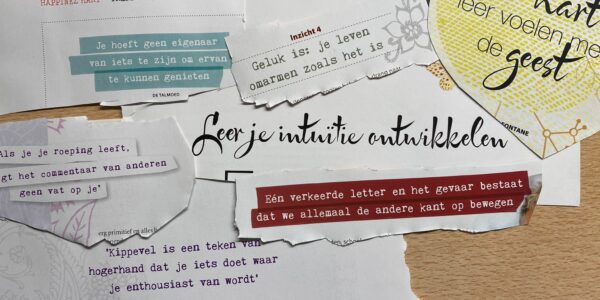 HAPPINEZ HART
Je hoeft geen eigenaar
van iets te zijn om ervan
te kunnen genieten
DE TALMOED
Inzicht 4
Geluk is: je leven
omarmen zoals het is
hart
leer voelen met
de geest
FONTANE
Leer je intuïtie ontwikkelen
Als je je roeping leeft,
gt het commentaar van anderen
geen vat op je'
Eén verkeerde letter en het gevaar bestaat
dat we allemaal de andere kant op bewegen
erg primitief en alles
'Kippevel is een teken van
hogerhand dat je iets doet waar
je enthousiast van wordt'